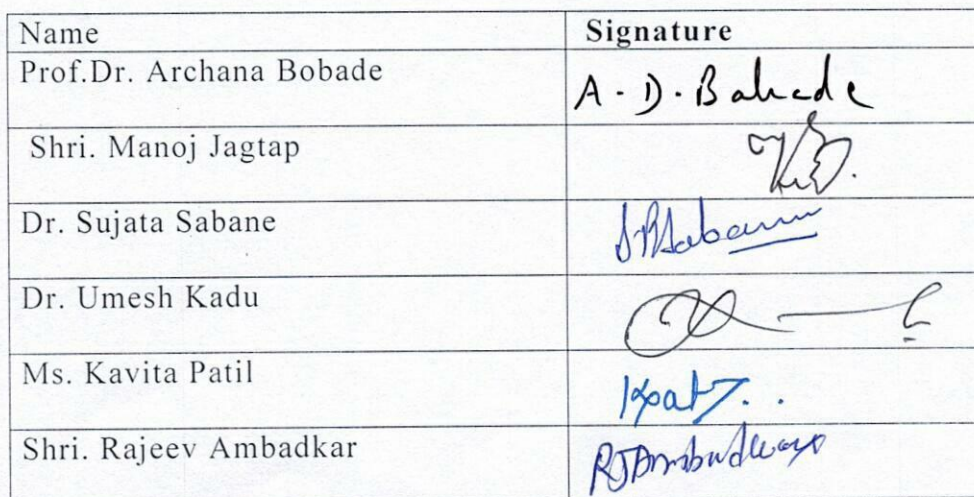 Name Signature
Prof.Dr. Archana Bobade A. D. Bobade
Shri. Manoj Jagtap
Dr. Sujata Sabane
Dr. Umesh Kadu
Ms. Kavita Patil
Shri. Rajeev Ambadkar